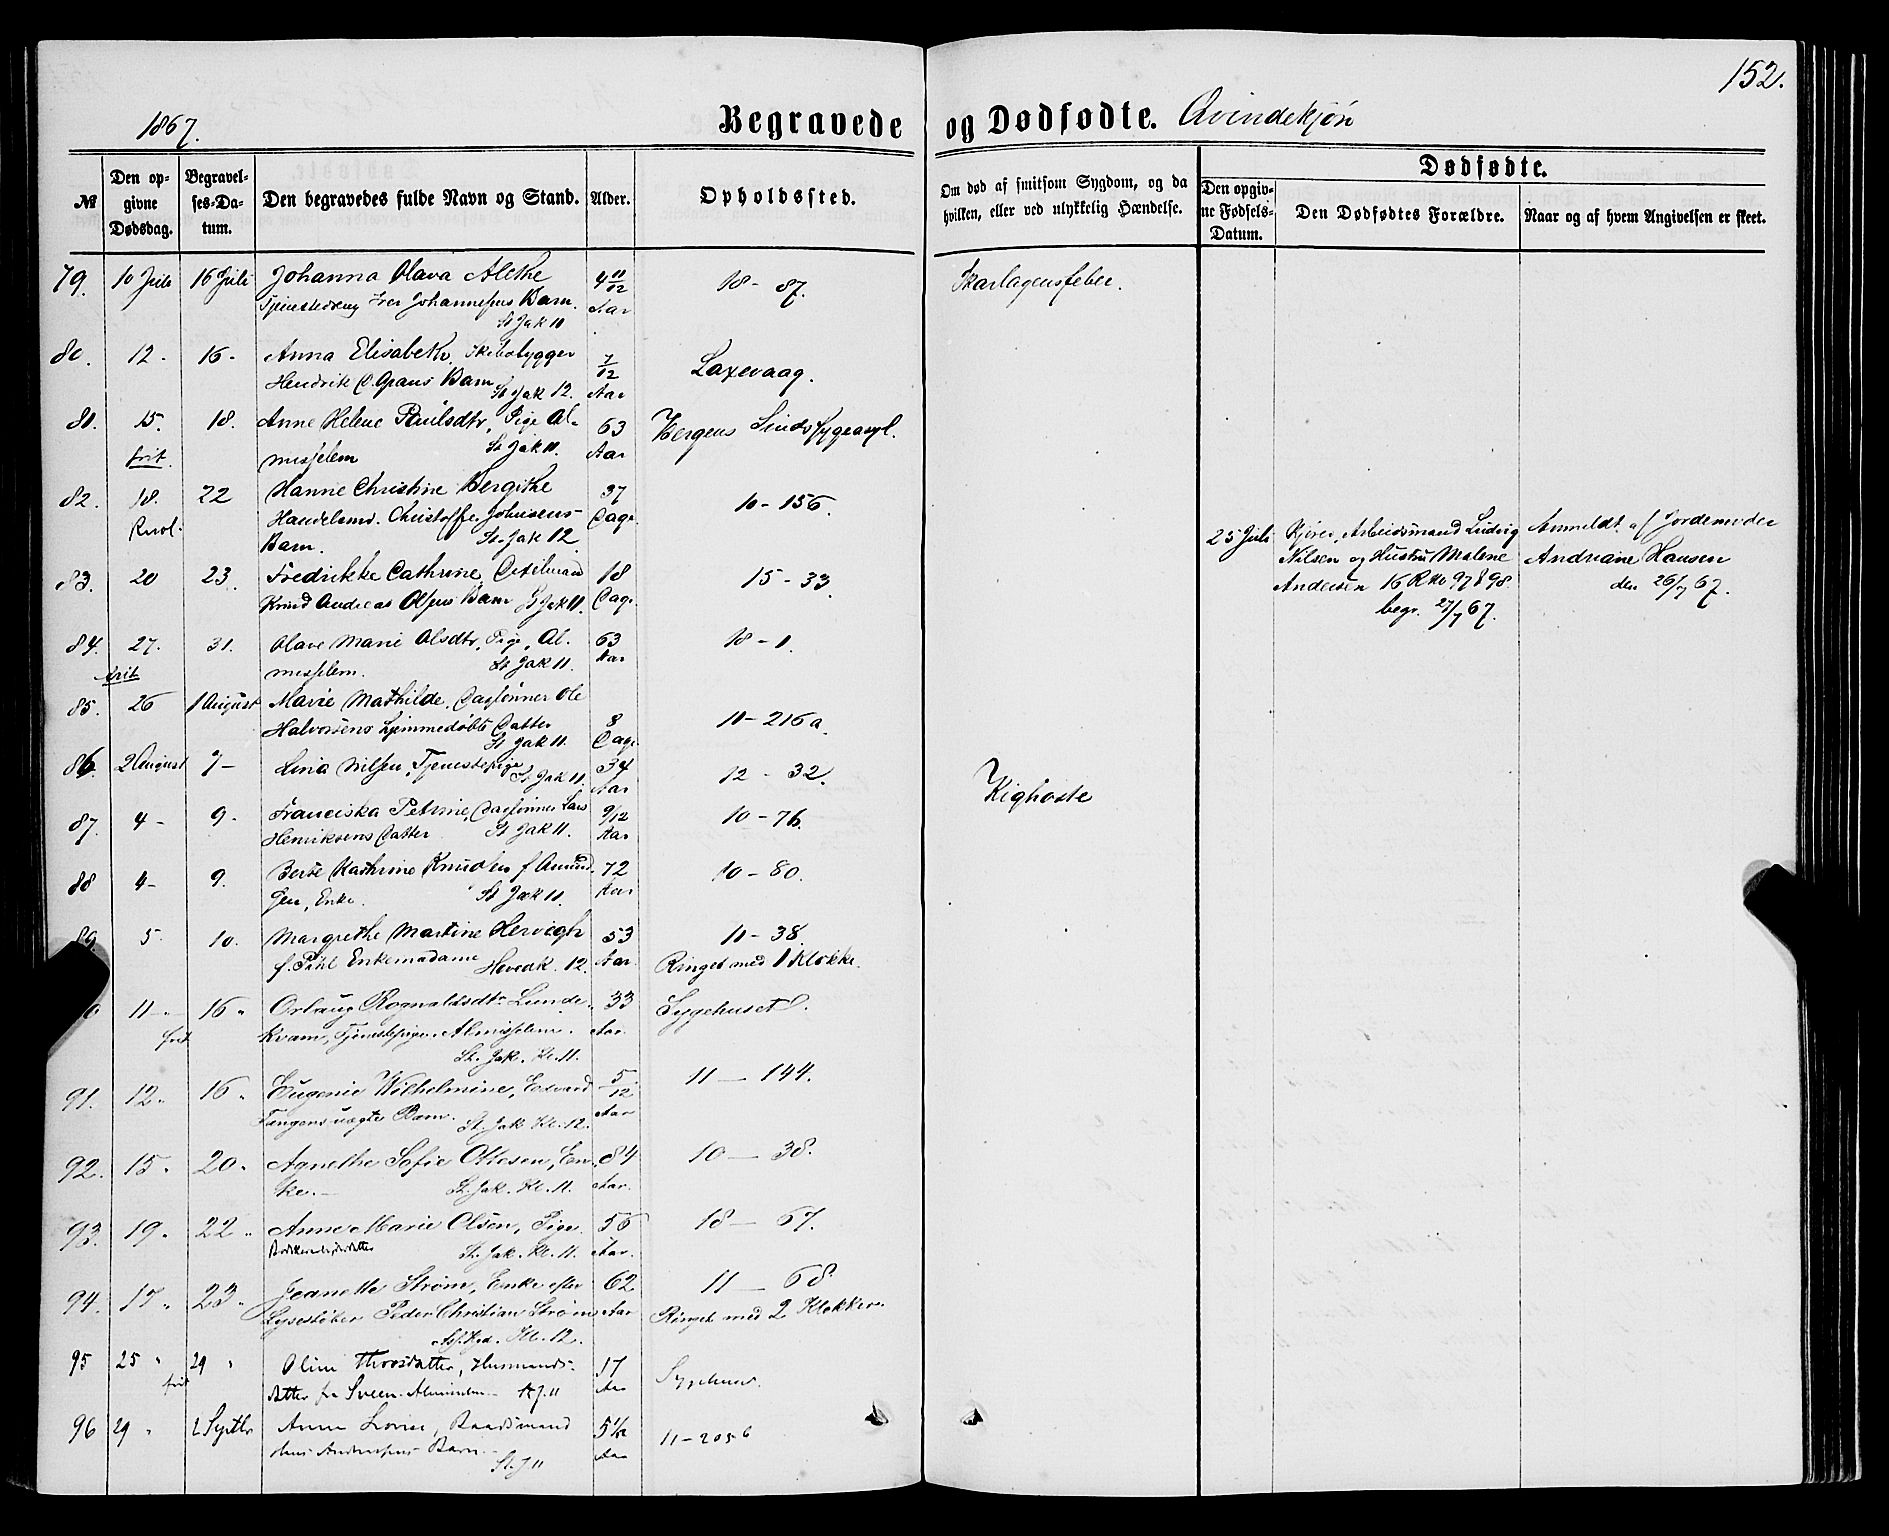 152.
1867.
Begravede og Dødfødte. Qvindekjøn
№
Den opgivne Dødsdag.
Begravelses-Datum.
Den begravedes fulde Navn og Stand.
Alder.
Opholdssted.
Om død af smitsom Sygdom, og da hvilken, eller ved ulykkelig Hændelse.
Dødfødte.
Den opgivne Fødsels-Datum.
Den Dødfødtes Forældre.
Naar og af hvem Angivelsen er skeet.
79. 10 Juli 16 Juli Johanna Olava Alethe 4 11/12 Aar 18 - 87. Skarlagensfeber.
Johannesens Barn.
St Jak 11
80. 12 - 16 - Anna Elisabeth, Skibsbygger 7/12 Aar Laxevaag.
Hendrik C. Grans Barn St Jak 12.
81. 15. 18. Anne Helene Paulsdtr, Pige Al- 63 Aar Bergens Sindssygeasyl.
frit. misselem St Jak 11.
82. 18. 22 Hanne Christine Bergithe 37 Dage 10 - 156.
Handelsmd. Christoffer Johnsens
Barn. St. Jak 12
83. 20 23. Fredrikke Cathrine, 18 Dage 15 - 33.
Knud Andreas Olsens Barn St Jak 11.
25 Juli Arbeidsmand Ludvig
Nilsen og Hustru Malene
Andersen 16 R No 97 & 98.
begr. 27/7 67.
Anmeldt af Jordemoder
Andriane Hansen
den 26/7 67.
84. 27. 31. Olave Marie Olsdtr, Pige, Al- 63 Aar 18 - 1.
frit misselem. St Jak 11.
85. 26 1 August Marie Mathilde, Ole
Halvorsens hjemmedøbte Datter 8 Dage 11 - 216 a.
St Jak 11.
86. 2 August 7 - Lina Nilsen, Tjenestepige 34 Aar 12 - 32.
St. Jak 11.
87. 4 - 9 - Franciska Petrine, Lars 9/12 Aar 10 - 76. Kighoste
Henriksens Datter St Jak 11.
88 4 - 9. Berte Kathrine Knudsen f Amund- 72 Aar 10 - 80.
sen, Enke. St Jak 11.
89. 5. 10. Margrethe Martine Hervigh 53 Aar. 11 - 38.
f. Pihl Enkemadame Hovedk. 12. Ringet med 1 Klokke.
11 - 16 " Rognaldsdtr 33 Aar. Sygehuset.
frit Kvam, Tjenestepige. Almisselem.
St. Jak. Kl. 11.
91. 12 " 16 " Eugenie Wilhelmine, Edvard 5/12 Aar 11 — 144.
Fangens uægte Barn. St. Jak Kl. 12.
92. 15 " 20 " Agnethe Sofie Ottesen, En- 84 Aar. 10 — 38.
ke. — St. Jak. Kl. 11.
93. 19 " 22 " Anne Marie Olsen, Pige 56 Aar. 18 — 67.
St. Jak. Kl. 11.
94. 17 " 23 " Jeanette Strøm, Enke efter 62 Aar 11 — 68.
Lysestøber Peder Christian Strøm Ringet med 2 Klokker.
Kl. 12.
95 25 " 29 " Oline Thorsdatter, Husmands- 17 Aar Sygehuset.
frit datter fra Sveen. Almisselem - St J. 11
96 29 " 2 Septbr Anna Lovise, Baadsmand 5 1/12 Aar 11 - 205 b
Andersens Barn. -
St. J 11